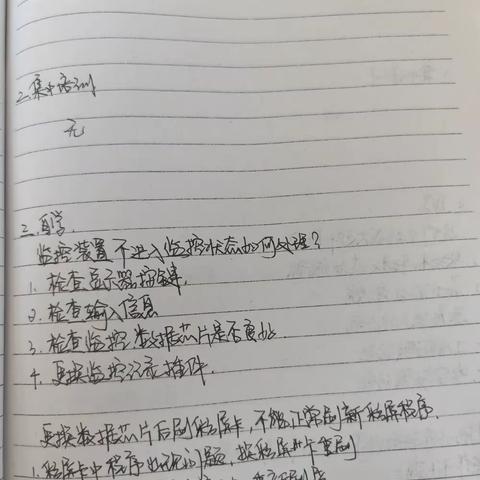 二.集中培训
无
三.自学.
监控装置不进入监控状态如何处理?
1. 检查显示器按键.
2. 检查输入信息
3. 检查监控数据芯片是否良好.
4. 更换监控记录插件.
更换数据芯片后刷程序卡,不能正常刷新程序.
1.程序卡中程序出现问题,按程序卡重刷